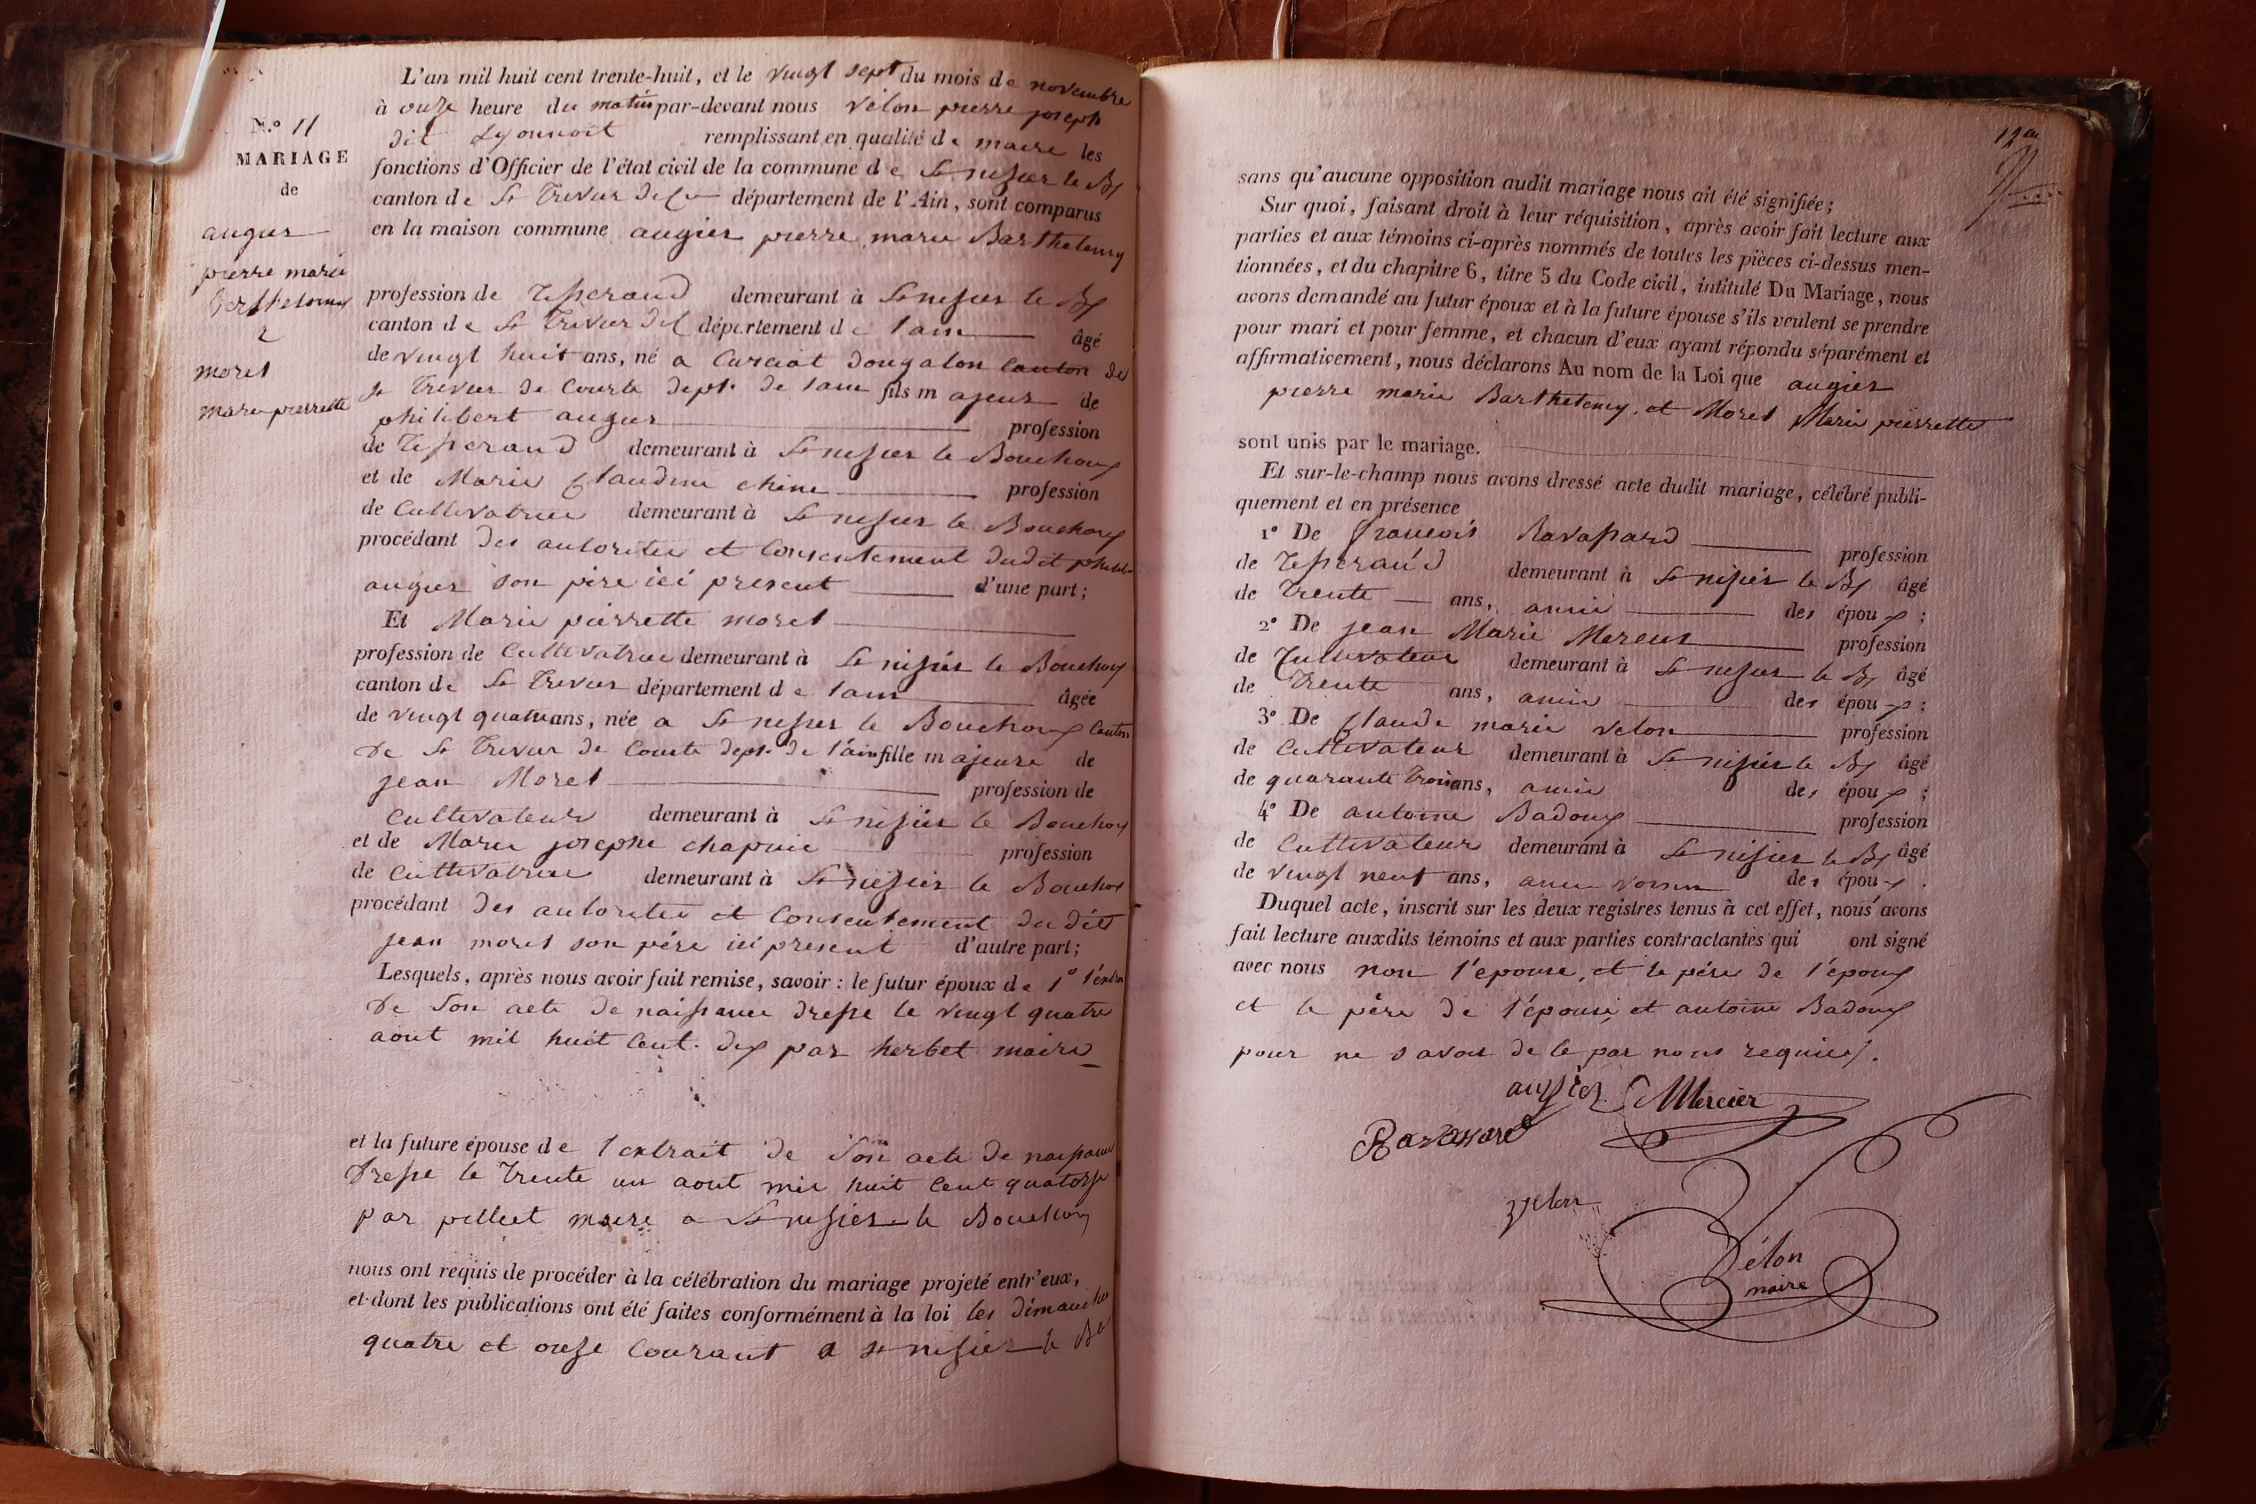 N.° 11
MARIAGE
de
augier
pierre marie
Barthelemy
&
morel
marie pierrette
L'an mil huit cent trente-huit, et le vingt sept du mois de novembre
à onze heure du matin par-devant nous vélon pierre joseph
dit Lyonnoit remplissant en qualité de maire les
fonctions d'Officier de l'état civil de la commune de St nisier le Bx
canton de St Trivier de C département de l'Ain, sont comparus
en la maison commune augier pierre marie Barthelemy
profession de Tisserand demeurant à St nisier le Bx
canton de St Trivier de C département de l ain âgé
de vingt huit ans, né a Curciat dongalon canton de
St Trivier de Courte dept. de l ain fils majeur de
philibert augier profession
de Tisserand demeurant à St nisier le Bouchoux
et de Marie Claudine chêne profession
de Cultivatrice demeurant à St nisier le Bouchoux
procédant des autorités et Consentement dudit philibt
augier son père ici present d'une part;
Et Marie pierrette morel
profession de Cultivatrice demeurant à St nisier le Bouchoux
canton de St Trivier département de l ain âgée
de vingt quatre ans, née a St nisier le Bouchoux Canton
de St Trivier de Courte dept. de l'ain fille majeure de
jean Morel profession de
Cultivateur demeurant à St nisier le Bouchoux
et de Marie josephe chapuis profession
de Cultivatrice demeurant à St nisier le Bouchox
procédant des autorités et Consentement du dit
jean morel son père ici present d'autre part;
Lesquels, après nous avoir fait remise, savoir: le futur époux de 1° l'extra
de Son acte de naissance dressé le vingt quatre
aout mil huit Cent dix par herbet maire
et la future épouse de l extrait de Son acte de naissance
dressé le Trente un aout mil huit Cent quatorze
par pillet maire a St nisier le Bouchoux
nous ont requis de procéder à la célébration du mariage projeté entr'eux,
et dont les publications ont été faites conformément à la loi les dimanches
quatre et onze Courant a St nisier le Bx
12 eme
sans qu'aucune opposition audit mariage nous ait été signifiée;
Sur quoi, faisant droit à leur réquisition, après avoir fait lecture aux
parties et aux témoins ci-après nommés de toutes les pièces ci-dessus men-
tionnées, et du chapitre 6, titre 5 du Code civil, intitulé Du Mariage, nous
avons demandé au futur époux et à la future épouse s'ils veulent se prendre
pour mari et pour femme, et chacun d'eux ayant répondu séparément et
affirmativement, nous déclarons Au nom de la Loi que augier
pierre marie Barthelemy, et Morel Marie pierrette
sont unis par le mariage.
Et sur-le-champ nous avons dressé acte dudit mariage, célébré publi-
quement et en présence
1° De francois Ravassard profession
de Tisserand demeurant à St nisier le Bx âgé
de Trente ans, amie des époux;
2° De jean Marie Mercier profession
de Cultivateur demeurant à St nisier le Bx âgé
de Trente ans, amie des époux;
3° De Claude marie velon profession
de Cultivateur demeurant à St nisier le Bx âgé
de quarante Trois ans, amie des époux;
4° De antoine Badoux profession
de Cultivateur demeurant à St nisier le Bx âgé
de vingt neuf ans, amie voisin des époux.
Duquel acte, inscrit sur les deux registres tenus à cet effet, nous avons
fait lecture auxdits témoins et aux parties contractantes qui ont signé
avec nous non l'epouse, et le père de l'époux
et le père de l'épouse et antoine Badoux
pour ne savoir de le par nous requies.
augier Mercier
Ravassard
velon
Vélon
maire